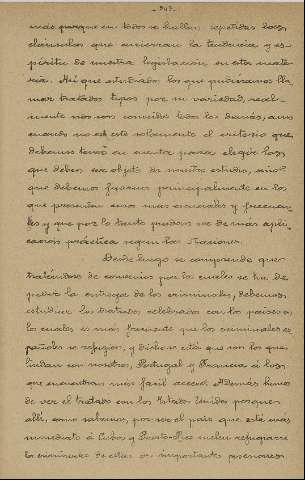 - 343 -
más porque en todos se hallan repetidas las
cláusulas que encierran la tendencia y es-
píritu de nuestra legislación en esta mate-
ria. Así que estudiados los que pudiéramos lla
mar tratados tipos por su variedad, real-
mente nos son conocidos todos los demás, aun
cuando no es este solamente el criterio que
debemos tener en cuenta para elegir los
que deben ser objeto de nuestro estudio, sino
que debemos fijarnos principalmente en los
que presentan casos más esenciales y frecuen-
tes y que por lo tanto puedan ser de más apli-
cación práctica según las Naciones.
Desde luego se comprende que
tratándose de convenios por los cuales se ha de
pedir la entrega de los criminales, debemos
estudiar los tratados celebrados con los países a
los cuales es más frecuente que los criminales es
pañoles se refugien, y dicho se está que son los que
lindan con nosotros, Portugal y Francia á los
que encuentran más fácil acceso. Además hemos
de ver el tratado con los Estados Unidos porque
allí, como sabemos, por ser el país que está más
inmediato á Cuba y Puerto-Rico suelen refugiarse
los criminales de estas importantes posesiones